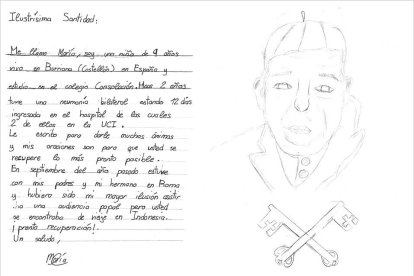 Ilustrísima Santidad:
Me llamo María, soy una niña de 9 años
vivo en Borriana (Castellón) en España y
estudio en el colegio Consolación. Hace 2 años
tuve una neumonía bilateral estando 12 días
ingresada en el hospital de los cuales
2 de ellos en la UCI.
Le escribo para darle muchos ánimos
y mis oraciones son para que usted se
recupere lo más pronto posible.
En septiembre del año pasado estuve
con mis padres y mi hermano en Roma
y hubiera sido mi mayor ilusión asistir
a una audiencia papal pero usted
se encontraba de viaje en Indonesia.
¡pronta recuperación!
Un saludo,
María